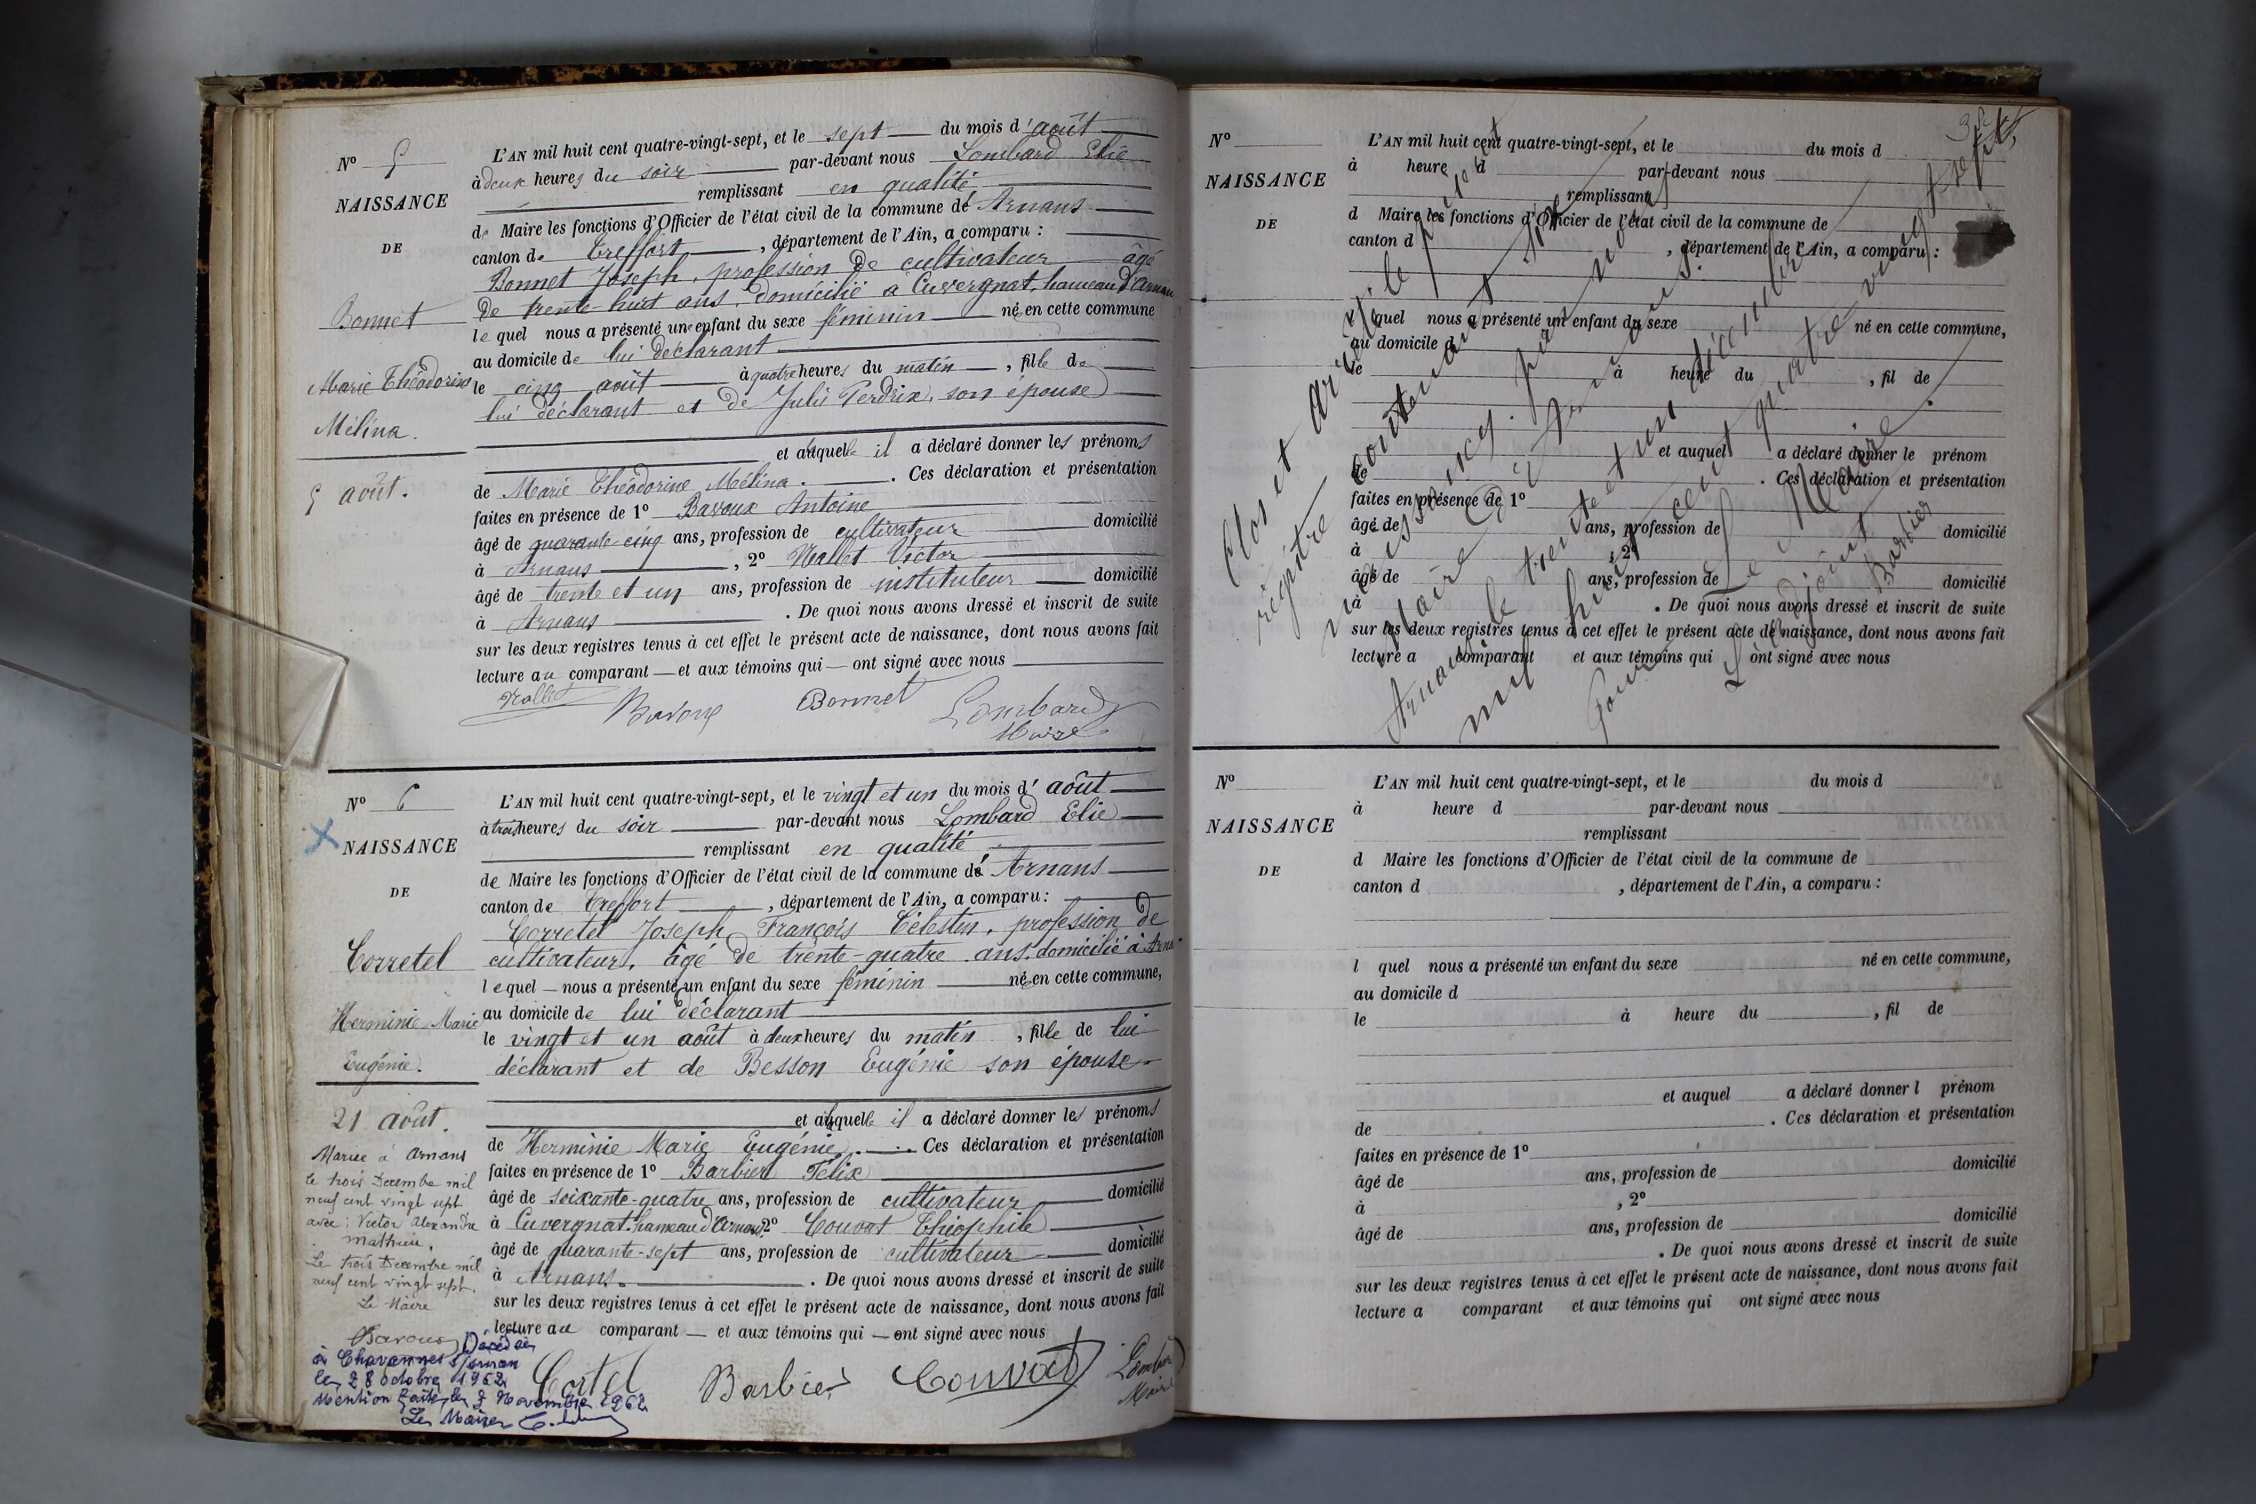 N° 5
NAISSANCE
DE
Bonnet
Marie Théodorine
Mélina.
5 août.
L'AN mil huit cent quatre-vingt-sept, et le sept du mois d'août
à deux heures du soir par-devant nous Lombard Elie
remplissant en qualité
de Maire les fonctions d'Officier de l'état civil de la commune de Arnans
canton de Treffort, département de l'Ain, a comparu :
Bonnet Joseph, profession de cultivateur âgé
de trente huit ans, domicilié à Cuvergnat, hameau d'Arnans
lequel nous a présenté une enfant du sexe féminin née en cette commune
au domicile de lui déclarant
le cinq août à quatre heures du matin, fille de
lui déclarant et de Julie Perdrix, son épouse
et auquelle il a déclaré donner les prénoms
de Marie Théodorine Mélina. Ces déclaration et présentation
faites en présence de 1° Bavoux Antoine
âgé de quarante-cinq ans, profession de cultivateur domicilié
à Arnans, 2° Mallet Victor
âgé de trente et un ans, profession de instituteur domicilié
à Arnans. De quoi nous avons dressé et inscrit de suite
sur les deux registres tenus à cet effet le présent acte de naissance, dont nous avons fait
lecture au comparant — et aux témoins qui — ont signé avec nous
Mallet Bavoux Bonnet Lombard
Maire
N° 6
NAISSANCE
DE
Corretel
Herminie Marie
Eugénie.
21 août.
L'AN mil huit cent quatre-vingt-sept, et le vingt et un du mois d'août
à trois heures du soir par-devant nous Lombard Elie
remplissant en qualité
de Maire les fonctions d'Officier de l'état civil de la commune de Arnans
canton de Treffort, département de l'Ain, a comparu :
Corretel Joseph François Célestin, profession de
cultivateur, âgé de trente-quatre ans, domicilié à Arnans
lequel — nous a présenté un enfant du sexe féminin née en cette commune,
au domicile de lui déclarant
le vingt et un août à deux heures du matin, fille de lui
déclarant et de Besson Eugénie son épouse
et auquelle il a déclaré donner les prénoms
de Herminie Marie Eugénie. Ces déclaration et présentation
faites en présence de 1° Barbier Félix
âgé de soixante-quatre ans, profession de cultivateur domicilié
à Cuvergnat, hameau d'Arnans, 2° Couvat Théophile
âgé de quarante-sept ans, profession de cultivateur domicilié
à Arnans. De quoi nous avons dressé et inscrit de suite
sur les deux registres tenus à cet effet le présent acte de naissance, dont nous avons fait
lecture au comparant — et aux témoins qui — ont signé avec nous
Cortel Barbier Couvat Lombard
Maire
Mariée à Arnans
le trois Decembre mil
neuf cent vingt sept
avec : Victor Alexandre
Mathieu.
Le trois Decembre mil
neuf cent vingt sept.
Le Maire
Bavoux
Décédée
à Chavannes s/ Suran
le 28 octobre 1962
Mention faite le 7 Novembre 1962
Le Maire
N°
NAISSANCE
DE
L'AN mil huit cent quatre-vingt-sept, et le du mois d
à heure d par-devant nous
remplissant
d Maire les fonctions d'Officier de l'état civil de la commune de
canton d , département de l'Ain, a comparu :
l quel nous a présenté un enfant du sexe né en cette commune,
au domicile d
le à heure du , fil de
et auquel a déclaré donner le prénom
de . Ces déclaration et présentation
faites en présence de 1°
âgé de ans, profession de domicilié
à , 2°
âgé de ans, profession de domicilié
à . De quoi nous avons dressé et inscrit de suite
sur les deux registres tenus à cet effet le présent acte de naissance, dont nous avons fait
lecture a comparant et aux témoins qui ont signé avec nous
Clos et arrêté le présent
registre contenant six
naissances. par nous
Maire d'Arnans.
Arnans le trente et un décembre
mil huit cent quatre vingt sept,
Pour Le Maire.
L'adjoint
Barbier
N°
NAISSANCE
DE
L'AN mil huit cent quatre-vingt-sept, et le du mois d
à heure d par-devant nous
remplissant
d Maire les fonctions d'Officier de l'état civil de la commune de
canton d , département de l'Ain, a comparu :
l quel nous a présenté un enfant du sexe né en cette commune,
au domicile d
le à heure du , fil de
et auquel a déclaré donner l prénom
de . Ces déclaration et présentation
faites en présence de 1°
âgé de ans, profession de domicilié
à , 2°
âgé de ans, profession de domicilié
. De quoi nous avons dressé et inscrit de suite
sur les deux registres tenus à cet effet le présent acte de naissance, dont nous avons fait
lecture a comparant et aux témoins qui ont signé avec nous